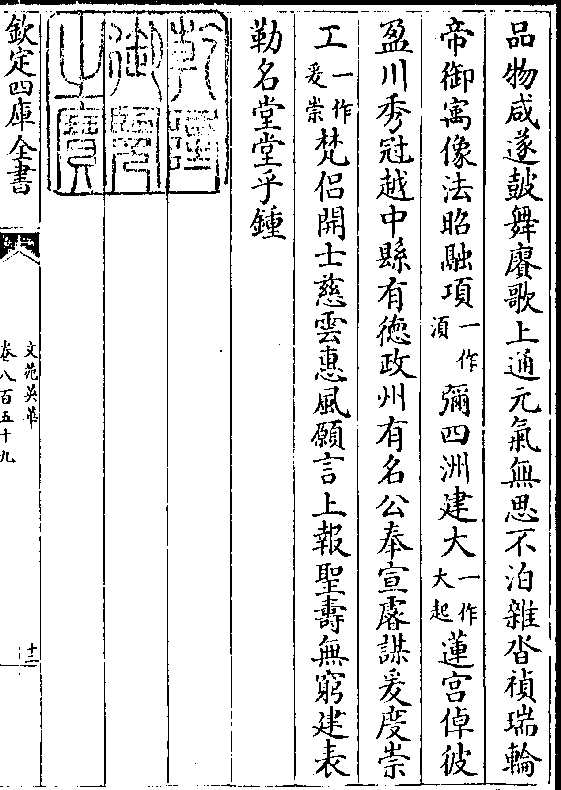 品物咸遂皷舞賡歌上通元氣無思不洎雜沓禎瑞輪
帝御寓像法昭融項一作湏彌四洲建大一作大起蓮宫倬彼
盈川秀冠越中縣有徳政州有名公奉宣睿謀爰度崇
工一作爰崇梵侣開士慈雲惠風願言上報聖壽無窮建表
勒名堂堂乎鍾
乾隆御覽之寳
欽定四庫全書
文苑英華
卷八百五十九
十二